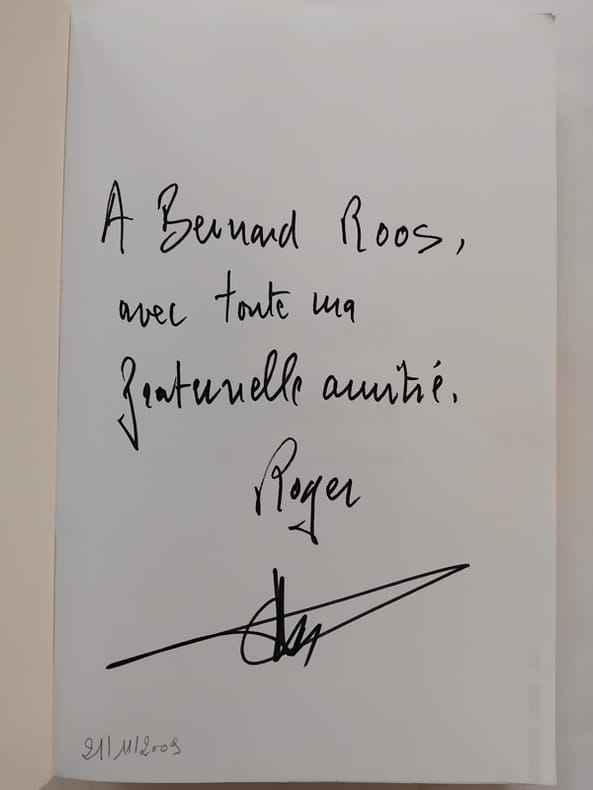 A Bernard Roos,
avec toute ma
fraternelle amitié.
Roger
21/11/2009